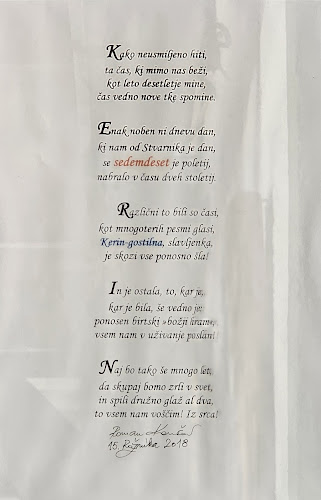 Kako neusmiljeno hiti,
ta čas, ki mimo nas beži,
kot leto desetletje mine,
čas vedno nove tke spomine.
Enak noben ni dnevu dan,
ki nam od Stvarnika je dan,
se sedemdeset je poletij,
nabralo v času dveh stoletij.
Različni to bili so časi,
kot mnogoterih pesmi glasi,
Kerin gostilna, slavljenka,
je skozi vse ponosno šla!
In je ostala, to, kar je,
kar je bila, še vedno je:
ponosen birtski »božji hram«,
vsem nam v uživanje poslan!
Naj bo tako še mnogo let,
da skupaj bomo zrli v svet,
in spili družno glaž al dva,
to vsem nam voščim! Iz srca!
Roman
15. Rožnika 2018